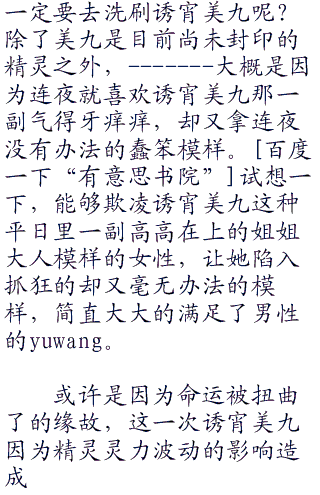 一定要去洗刷诱宵美九呢?
除了美九是目前尚未封印的
精灵之外，-------大概是因
为连夜就喜欢诱宵美九那一
副气得牙痒痒，却又拿连夜
没有办法的蠢笨模样。[百度
一下“有意思书院”]试想一
下，能够欺凌诱宵美九这种
平日里一副高高在上的姐姐
大人模样的女性，让她陷入
抓狂的却又毫无办法的模
样，简直大大的满足了男性
的yuwang。
或许是因为命运被扭曲
了的缘故，这一次诱宵美九
因为精灵灵力波动的影响造
成